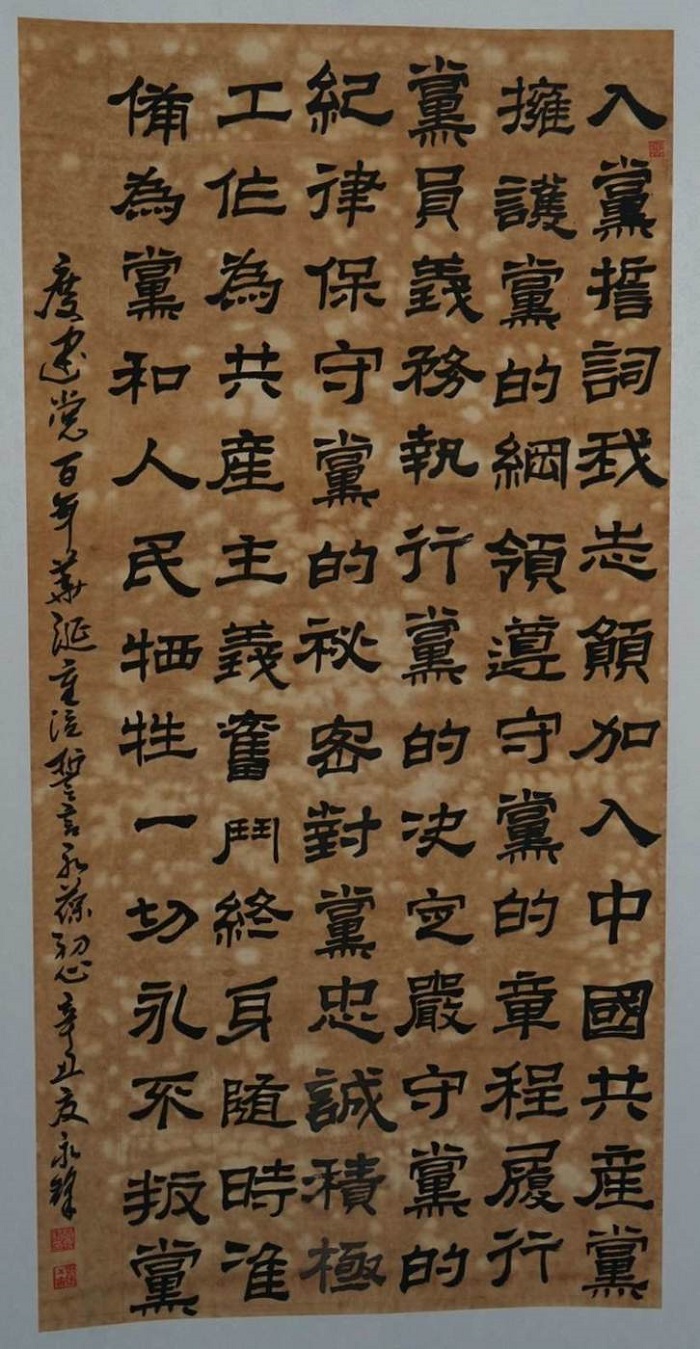 入黨誓詞我志願加入中國共産黨
擁護黨的綱領遵守黨的章程履行
黨員義務執行黨的决定嚴守黨的
紀律保守黨的祕密對黨忠誠積極
工作為共産主義奮鬥終身随時准
備為黨和人民牺牲一切永不叛黨
慶建党百年華诞重温誓言永葆初心辛丑夏永鋒